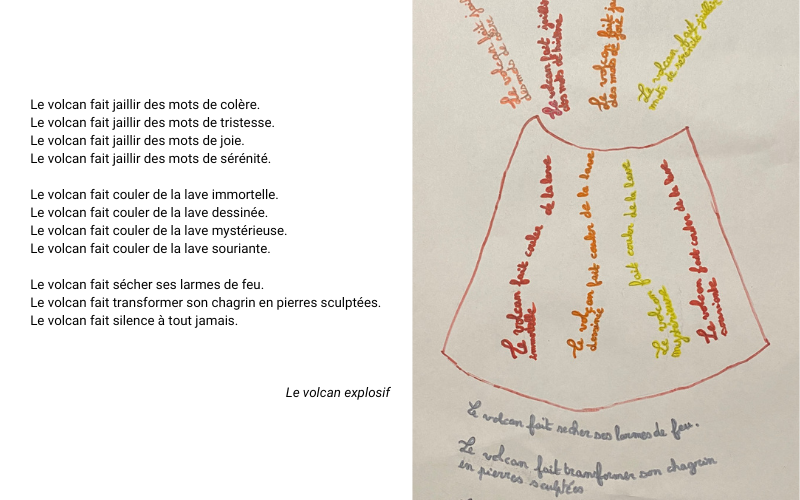 Le volcan fait jaillir des mots de colère.
Le volcan fait jaillir des mots de tristesse.
Le volcan fait jaillir des mots de joie.
Le volcan fait jaillir des mots de sérénité.
Le volcan fait couler de la lave immortelle.
Le volcan fait couler de la lave dessinée.
Le volcan fait couler de la lave mystérieuse.
Le volcan fait couler de la lave souriante.
Le volcan fait sécher ses larmes de feu.
Le volcan fait transformer son chagrin en pierres sculptées.
Le volcan fait silence à tout jamais.
Le volcan explosif
Le volcan fait jaillir
des mots de colère
Le volcan fait jaillir
des mots de tristesse
Le volcan fait
des mots de joie
Le volcan fait jaillir
mots de sérénité
Le volcan fait couler de la lave
immortelle
Le volcan fait couler de la lave
dessiné
Le volcan fait couler de la lave
mystérieuse
Le volcan fait couler de la lave
souriante
Le volcan fait sécher ses larmes de feu.
Le volcan fait tranformer son chagrin
en pierres sculptées